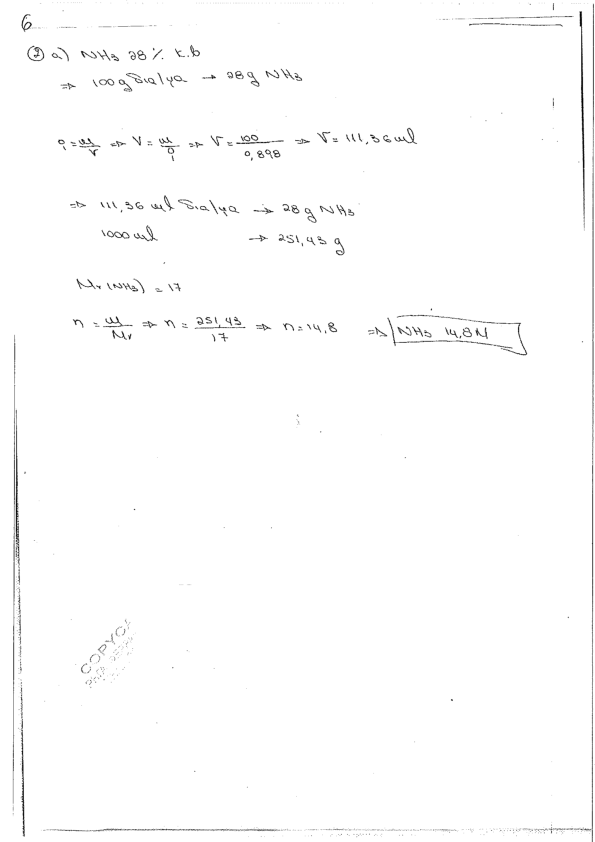 6
② a) NH3 28% κ.β
⇒ 100g διαλ/μα → 28g NH3
ρ = m/V ⇒ V = m/ρ ⇒ V = 100/0,898 ⇒ V = 111,36 ml
⇒ 111,36 ml διαλ/μα → 28 g NH3
1000 ml → 251,43 g
Mr (NH3) = 17
n = m/Mr ⇒ n = 251,43/17 ⇒ n = 14,8 ⇒ NH3 14,8 M
COPYCA